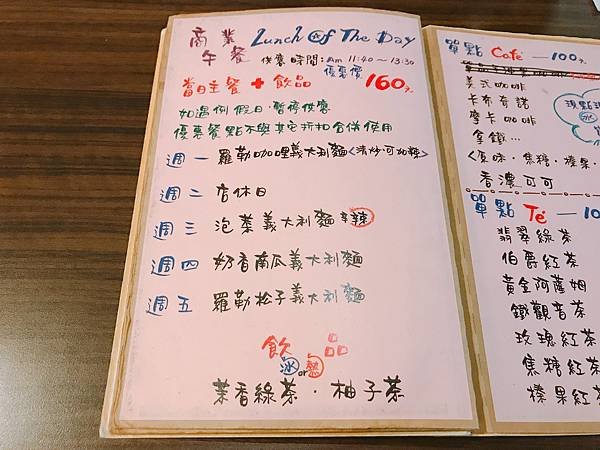 商業午餐 Lunch Of The Day
供應時間:Am 11:40~13:30
優惠價
當日主餐+飲品 160元
如遇例假日,暫停供應
優惠餐點不與其它折扣合併使用
週一 羅勒咖哩義大利麵<清炒可加辣>
週二 店休日
週三 泡菜義大利麵 辛辣
週四 奶香南瓜義大利麵
週五 羅勒松子義大利麵
飲品
冰or熱
茉香綠茶.柚子茶
單點 Café —100元
美式咖啡
卡布奇諾
摩卡咖啡
拿鐵...
<原味.焦糖.榛果.
香濃可可
現點現
冰
單點 Té —10
翡翠綠茶
伯爵紅茶
黃金阿薩姆
鐵觀音茶
玫瑰紅茶
焦糖紅茶
榛果紅茶